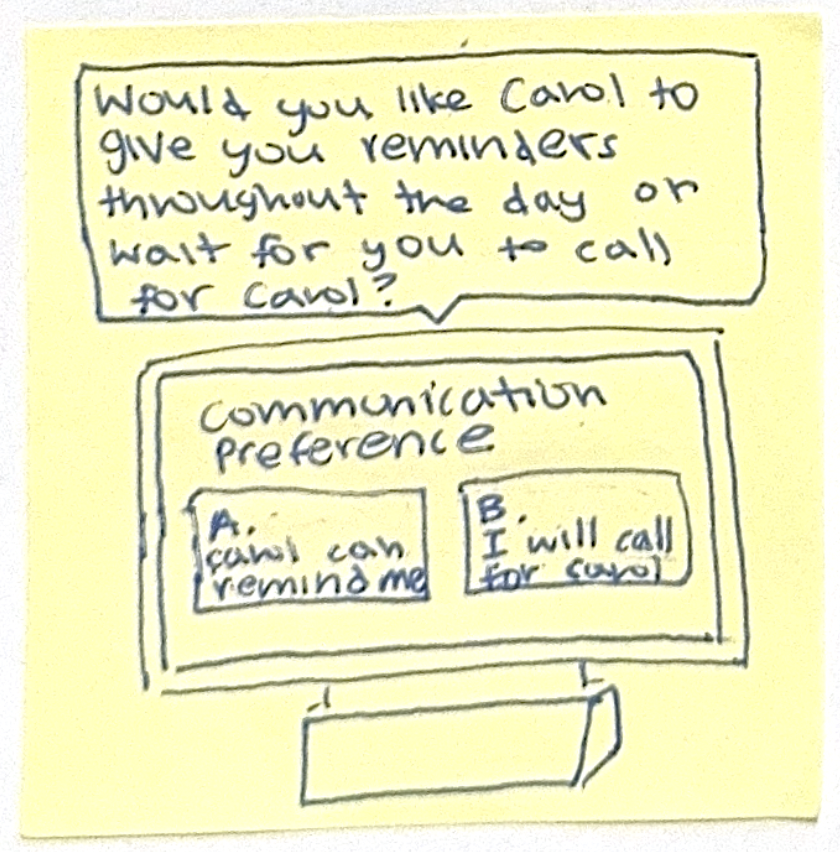 Would you like Carol to
give you reminders
throughout the day or
wait for you to call
for Carol?
Communication
Preference
A.
Carol can
remind me
B.
I will call
for Carol